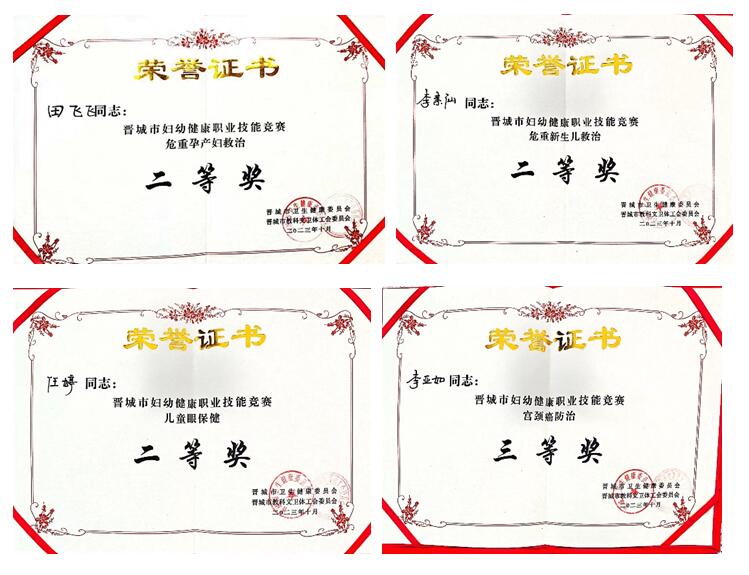 荣誉证书
田飞飞同志：
晋城市妇幼健康职业技能竞赛
危重孕产妇救治
二等奖
晋城市卫生健康委员会
晋城市教科文卫体工会委员会
二〇二三年十月
荣誉证书
同志：
晋城市妇幼健康职业技能竞赛
危重新生儿救治
二等奖
晋城市卫生健康委员会
晋城市教科文卫体工会委员会
二〇二三年十月
荣誉证书
汪婷 同志：
晋城市妇幼健康职业技能竞赛
儿童眼保健
二等奖
晋城市卫生健康委员会
晋城市教科文卫体工会委员会
二〇二三年十月
荣誉证书
李亚如 同志：
晋城市妇幼健康职业技能竞赛
宫颈癌防治
三等奖
晋城市卫生健康委员会
晋城市教科文卫体工会委员会
二〇二三年十月